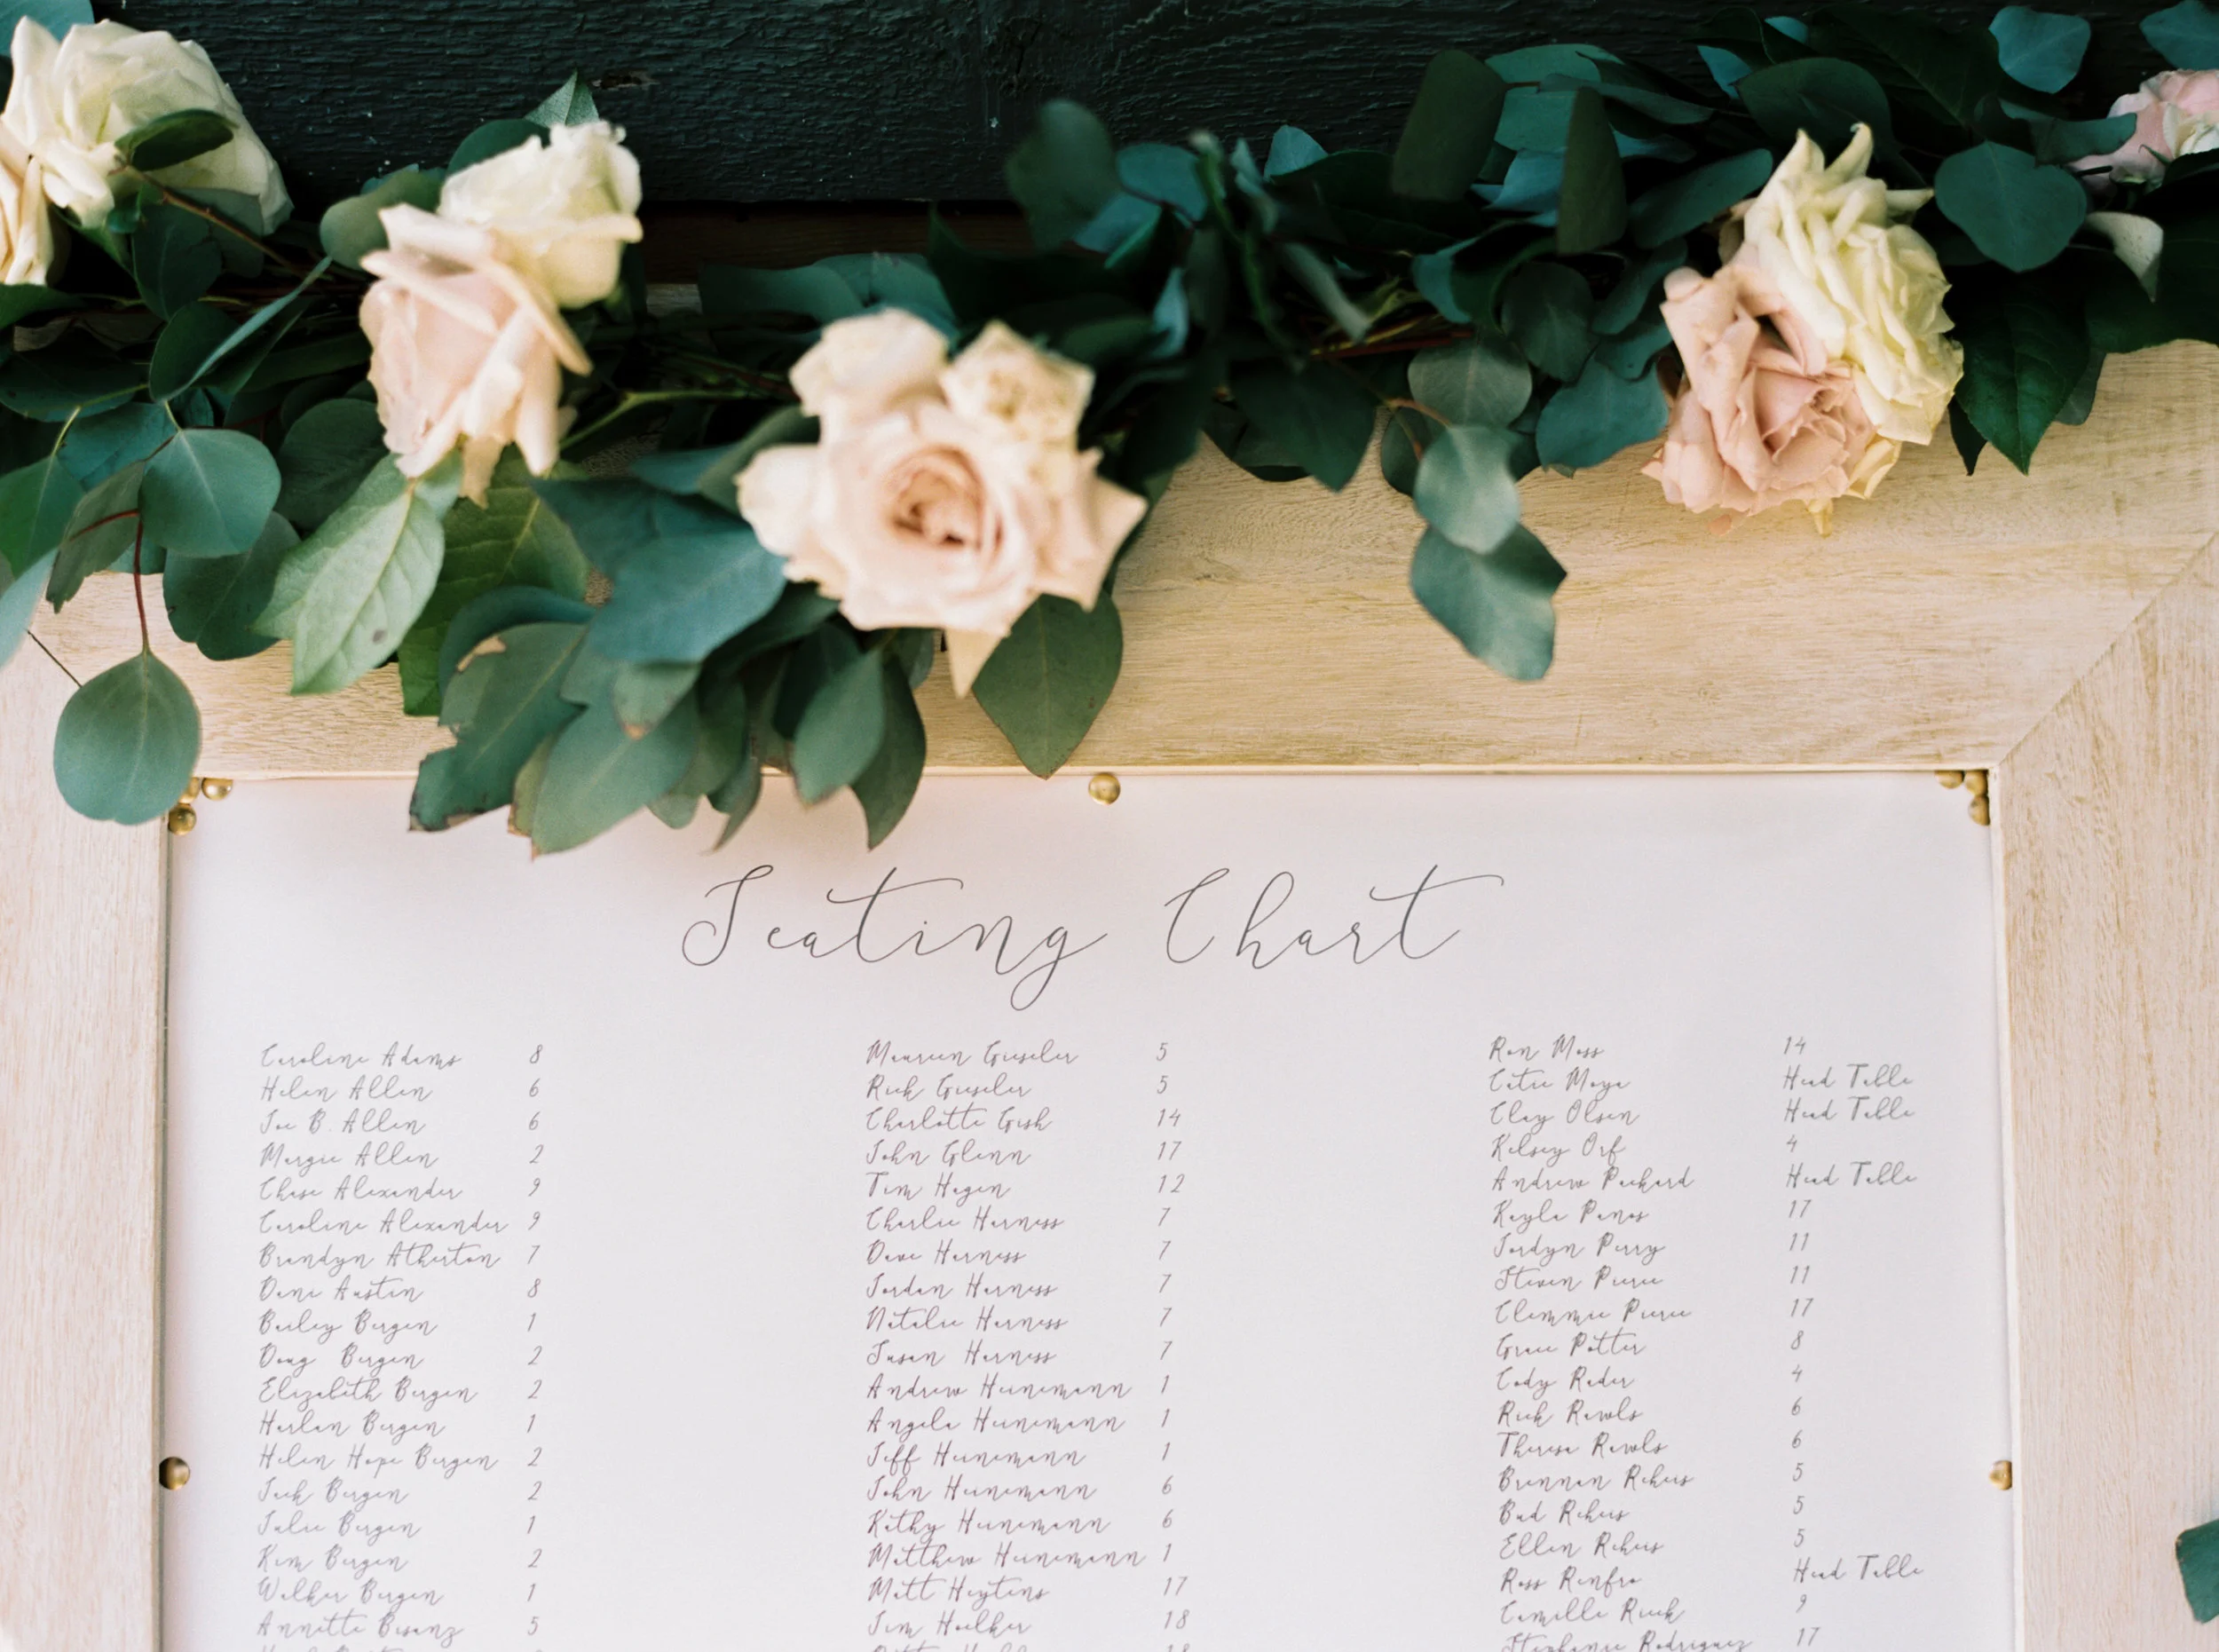 Seating Chart
Caroline Adams 8
Helen Allen 6
Joe B. Allen 6
Margie Allen 2
Chase Alexander 9
Caroline Alexander 9
Brandyn Atherton 7
Dani Austin 8
Bailey Bergen 1
Doug Bergen 2
Elizabeth Bergen 2
Harlan Bergen 1
Helen Hope Bergen 2
Jack Bergen 2
Julie Bergen 1
Kim Bergen 2
Walker Bergen 1
Annette Bisanz 5
Maureen Gieseler 5
Rick Gieseler 5
Charlotte Gish 14
John Glenn 17
Tim Hagen 12
Charlie Harness 7
Dave Harness 7
Jordan Harness 7
Natalie Harness 7
Susan Harness 7
Andrew Heinemann 1
Angela Heinemann 1
Jeff Heinemann 1
John Heinemann 6
Kathy Heinemann 6
Matthew Heinemann 1
Matt Heytens 17
Jim Hoelker 18
Ron Moss 14
Catie Moya Head Table
Clay Olsen Head Table
Kelsey Orf 4
Andrew Packard Head Table
Kayla Panos 17
Jordyn Perry 11
Steven Pierce 11
Clemmie Pierce 17
Grace Potter 8
Cody Rader 4
Rick Rawls 6
Theresa Rawls 6
Brennan Reheis 5
Bud Reheis 5
Ellen Reheis 5
Ross Renfro Head Table
Camille Rieck 9
Stephanie Rodriguez 17